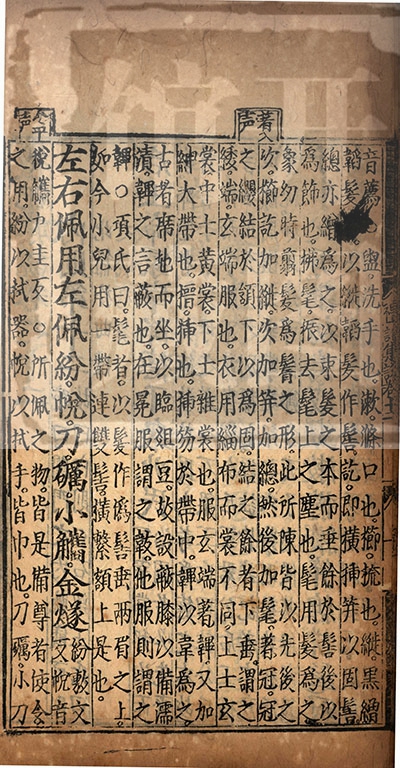 著入
声
令平
声
音薦○盥洗手也漱滌口也櫛梳也縰黑繒
韜髮者以縰韜髮作髻訖即橫揷笄以固髻
總亦繒爲之以束髮之本而垂餘於髻後以
爲飾也拂髦振去髦上之塵也髦用髮爲之
象幼時翦髮爲鬌之形此所陳皆以先後之
次櫛訖加縰次加笄加總然後加髦著冠冠
之纓結於頷下以爲固結之餘者下垂謂之
緌端玄端服也衣用緇布而裳不同上士玄
裳中士黃裳下士雜裳也服玄端著韠又加
紳大帶也搢揷也揷笏於帶中韠以韋爲之
古者席地而坐以臨俎豆故設蔽膝以備濡
漬韠之言蔽也在冕服謂之韍他服則謂之
韠○項氏曰髦者以髮作僞髻垂兩眉之上
如今小兒用一帶連雙髻橫繫額上是也
左右佩用左佩紛帨刀礪小觿金燧紛敷文
反帨音
稅觿力圭反○所佩之物皆是備尊者使令
之用紛以拭器帨以拭手皆巾也刀礪小刀